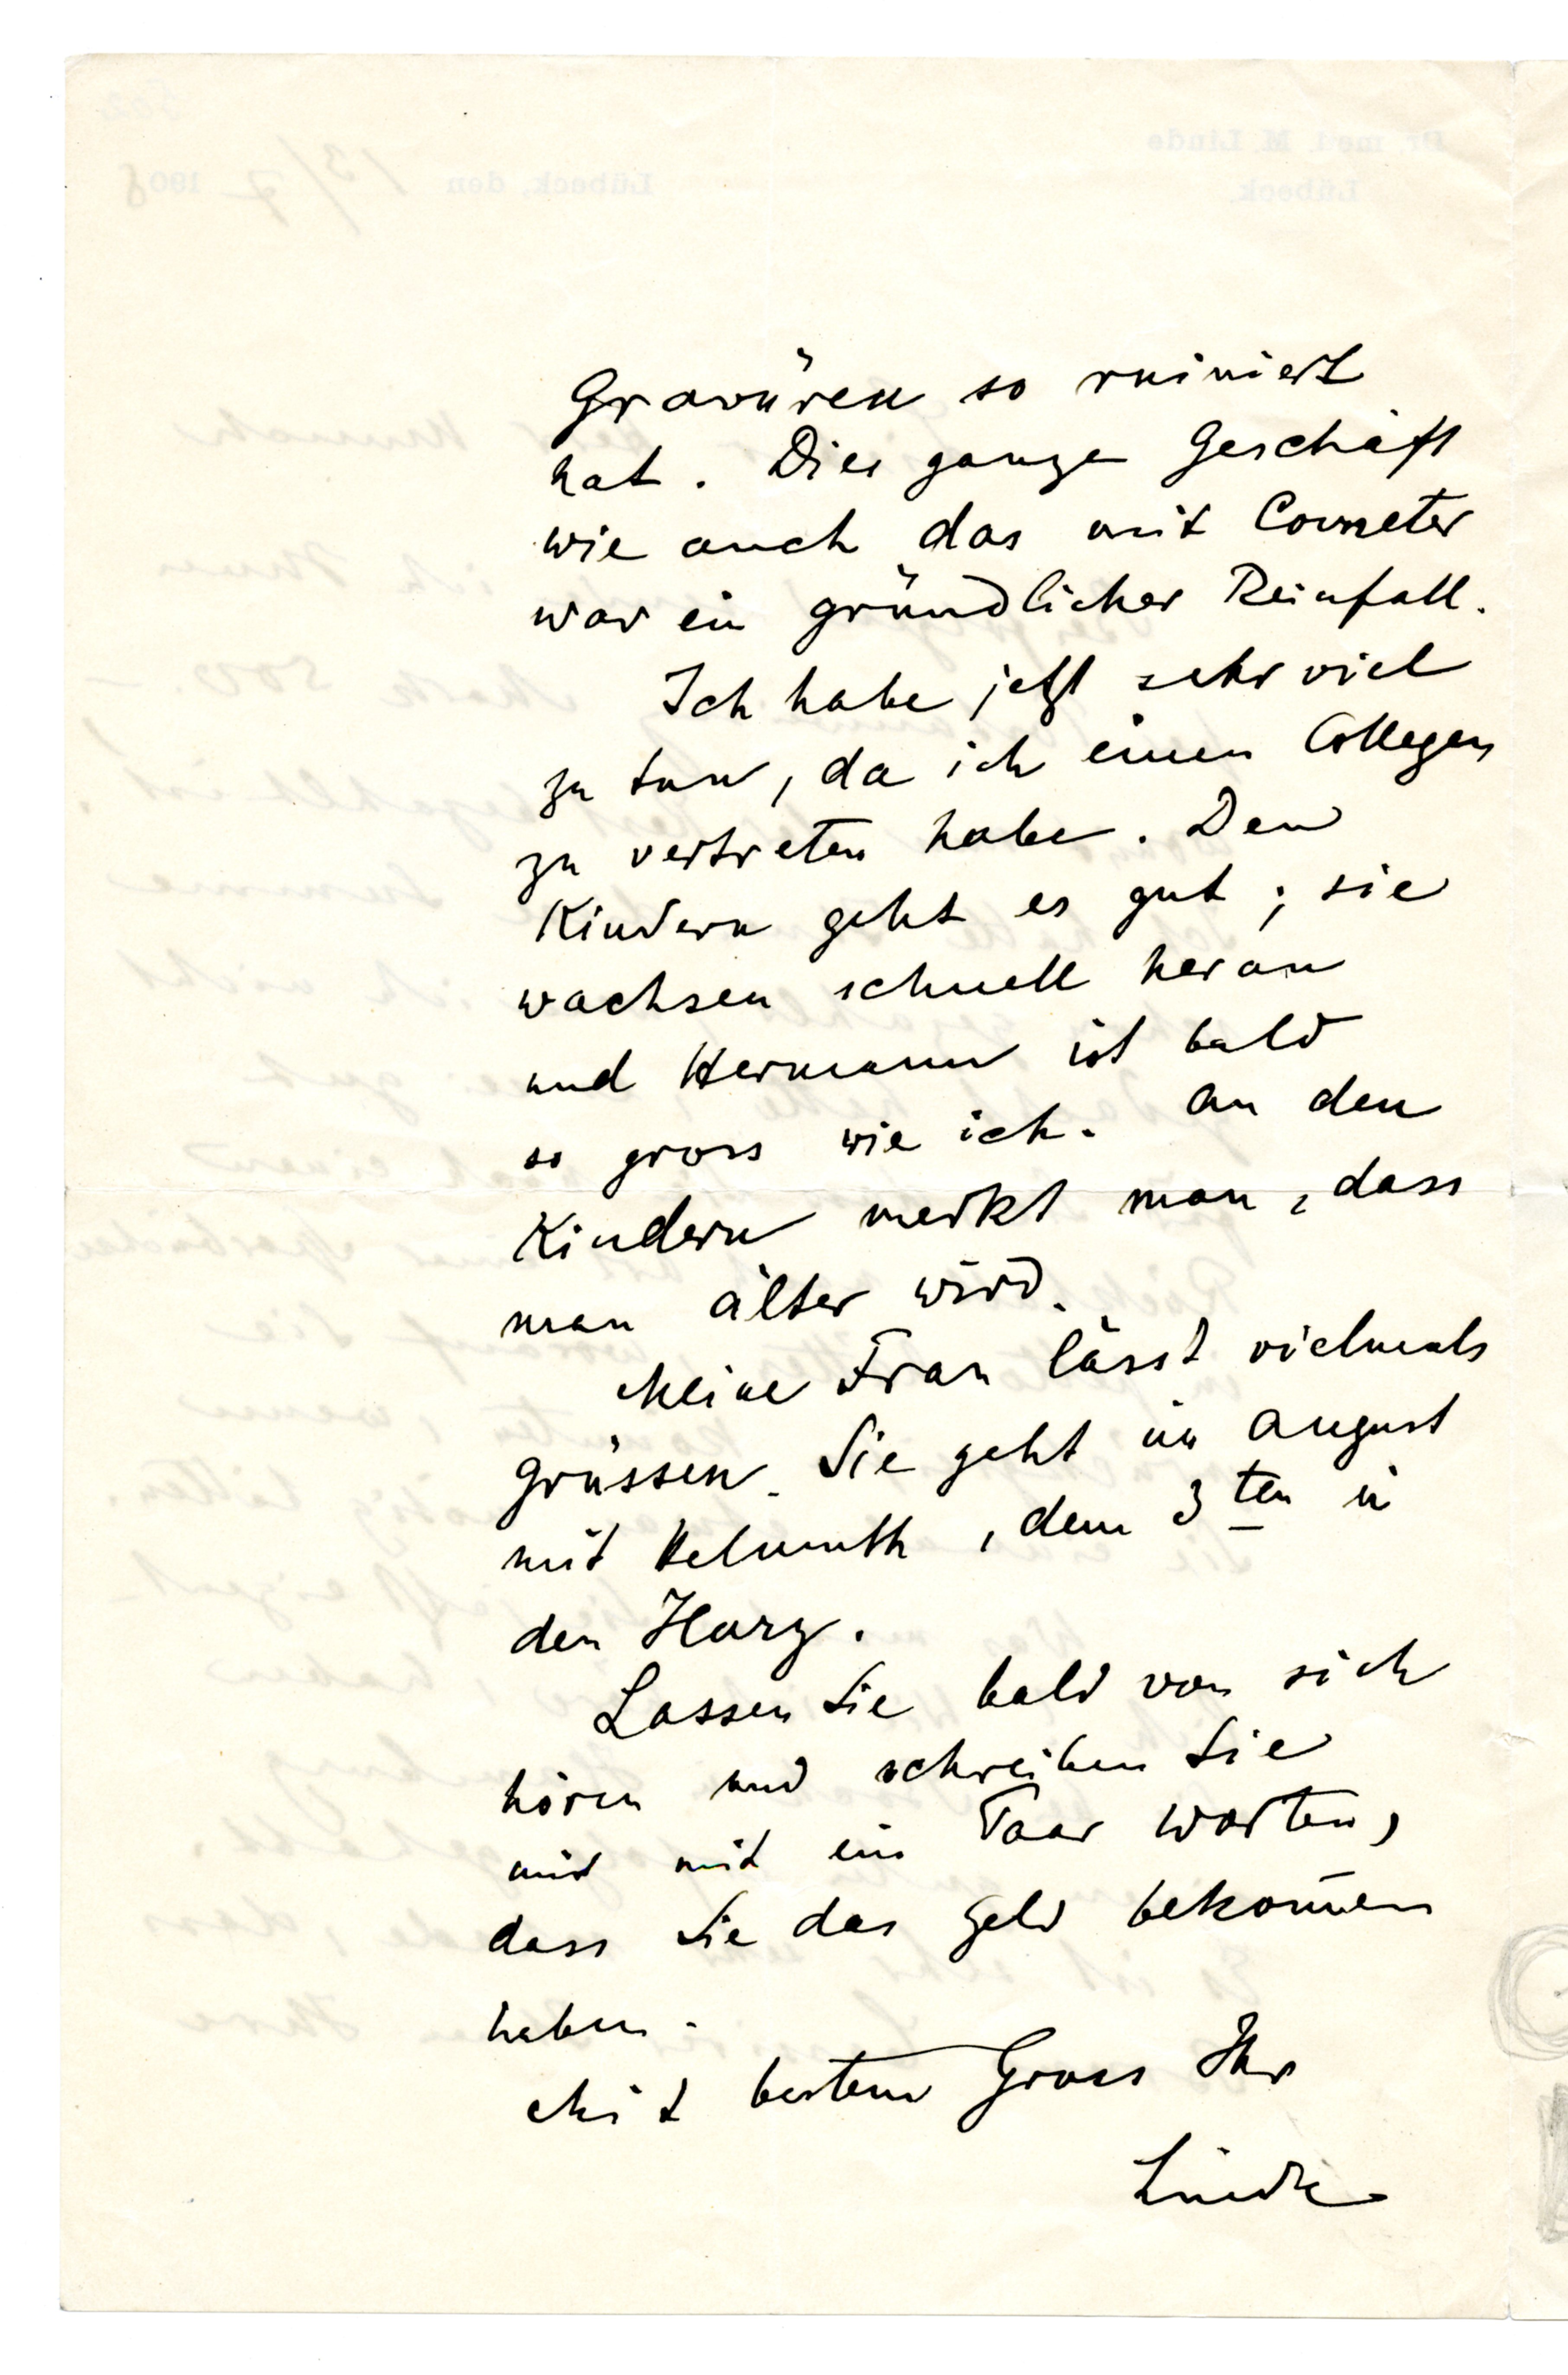 Gravüren so ruiniert
hat. Dies ganze Geschäft
wie auch das mit Commeter
war ein gründlicher Reinfall.
Ich habe jetzt sehr viel
zu tun, da ich einen Collegen
zu vertreten habe. Den
Kindern geht es gut; sie
wachsen schnell heran
und Hermann ist bald
so gross wie ich. An den
Kindern merkt man, dass
man älter wird.
Meine Frau lässt vielmals
grüssen. Sie geht im August
mit Helmuth, dem 3ten in
den Harz.
Lassen Sie bald von sich
hören und schreiben Sie
mir mit ein Paar Worten,
dass Sie das Geld bekom̄en
haben.
Mit bestem Gruss Ihr
Linde